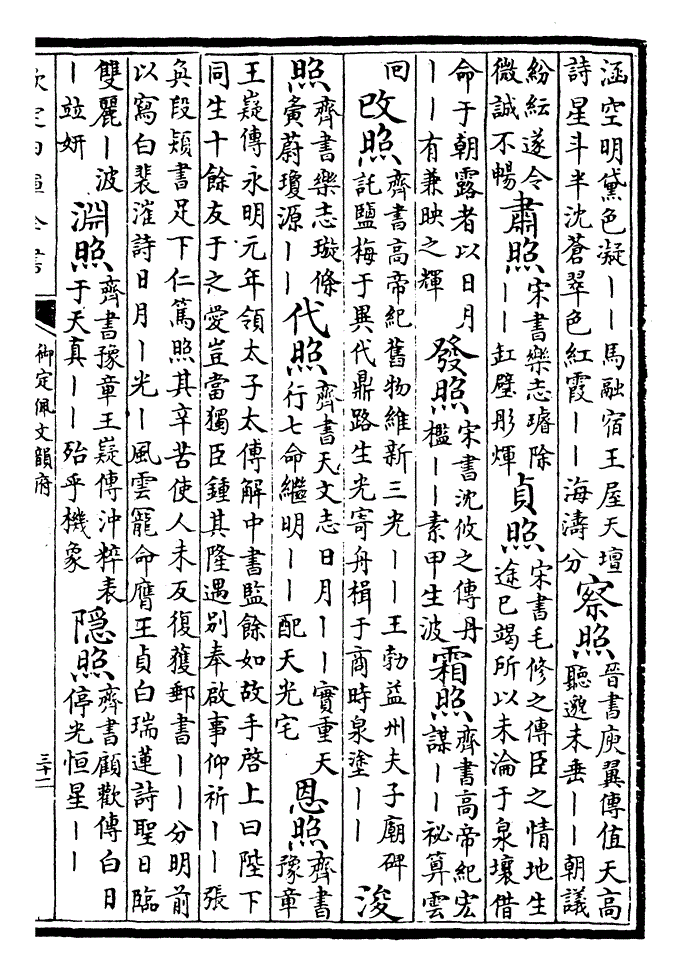 涵空明黛色凝丨丨馬融宿王屋天壇
詩星斗半沈蒼翠色紅霞丨丨海濤分
察照
晉書庾翼傳值天高
聽邈未垂丨丨朝議
紛紜遂令
微誠不暢
肅照
宋書樂志璿除
丨丨缸壁彤煇
貞照
宋書毛修之傳臣之情地生
途已竭所以未淪于泉壤借
命于朝露者以日月
丨丨有兼映之輝
發照
宋書沈攸之傳丹
檻丨丨素甲生波
霜照
齊書高帝紀宏
謀丨丨祕算雲
回
改照
齊書高帝紀舊物維新三光丨丨王勃益州夫子廟碑
託鹽梅于異代鼎路生光寄舟楫于商時泉塗丨丨
浚
照
齊書樂志璇條
黃蔚瓊源丨丨
代照
齊書天文志日月丨丨實重天
行七命繼明丨丨配天光宅
恩照
齊書
豫章
王嶷傳永明元年領太子太傅解中書監餘如故手啓上曰陛下
同生十餘友于之愛豈當獨臣鍾其隆遇別奉啟事仰祈丨丨張
奐段熲書足下仁篤照其辛苦使人未反復獲郵書丨丨分明前
以寫白裴漼詩日月丨光丨風雲寵命膺王貞白瑞蓮詩聖日臨
雙麗丨波
丨竝妍
淵照
齊書豫章王嶷傳沖粹表
于天真丨丨殆乎機象
隱照
齊書顧歡傳白日
停光恒星丨丨
欽定四庫全書
御定佩文韻府
三十二